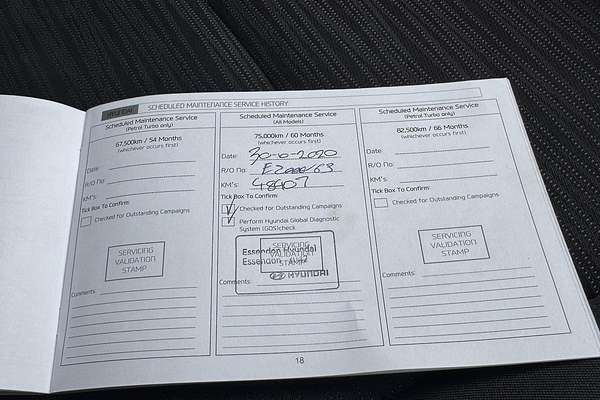 HYUNDAI SCHEDULED MAINTENANCE SERVICE HISTORY
Scheduled Maintenance Service
(Petrol Turbo only)
67,500km / 54 Months
(whichever occurs first)
Date:
R/O No:
KM's:
Tick Box To Confirm:
Checked for Outstanding Campaigns
SERVICING
VALIDATION
STAMP
Comments:
Scheduled Maintenance Service
(All Models)
75,000km / 60 Months
(whichever occurs first)
Date:
R/O No:
KM's: 48607
Tick Box To Confirm:
Checked for Outstanding Campaigns
Perform Hyundai Global Diagnostic
System (GDS)check
SERVICING
VALIDATION
STAMP
Essendon Hyundai
Essendon
HYUNDAI
Comments:
Scheduled Maintenance Service
(Petrol Turbo only)
82,500km / 66 Months
(whichever occurs first)
Date:
R/O No:
KM's:
Tick Box To Confirm:
Checked for Outstanding Campaigns
SERVICING
VALIDATION
STAMP
Comments:
18